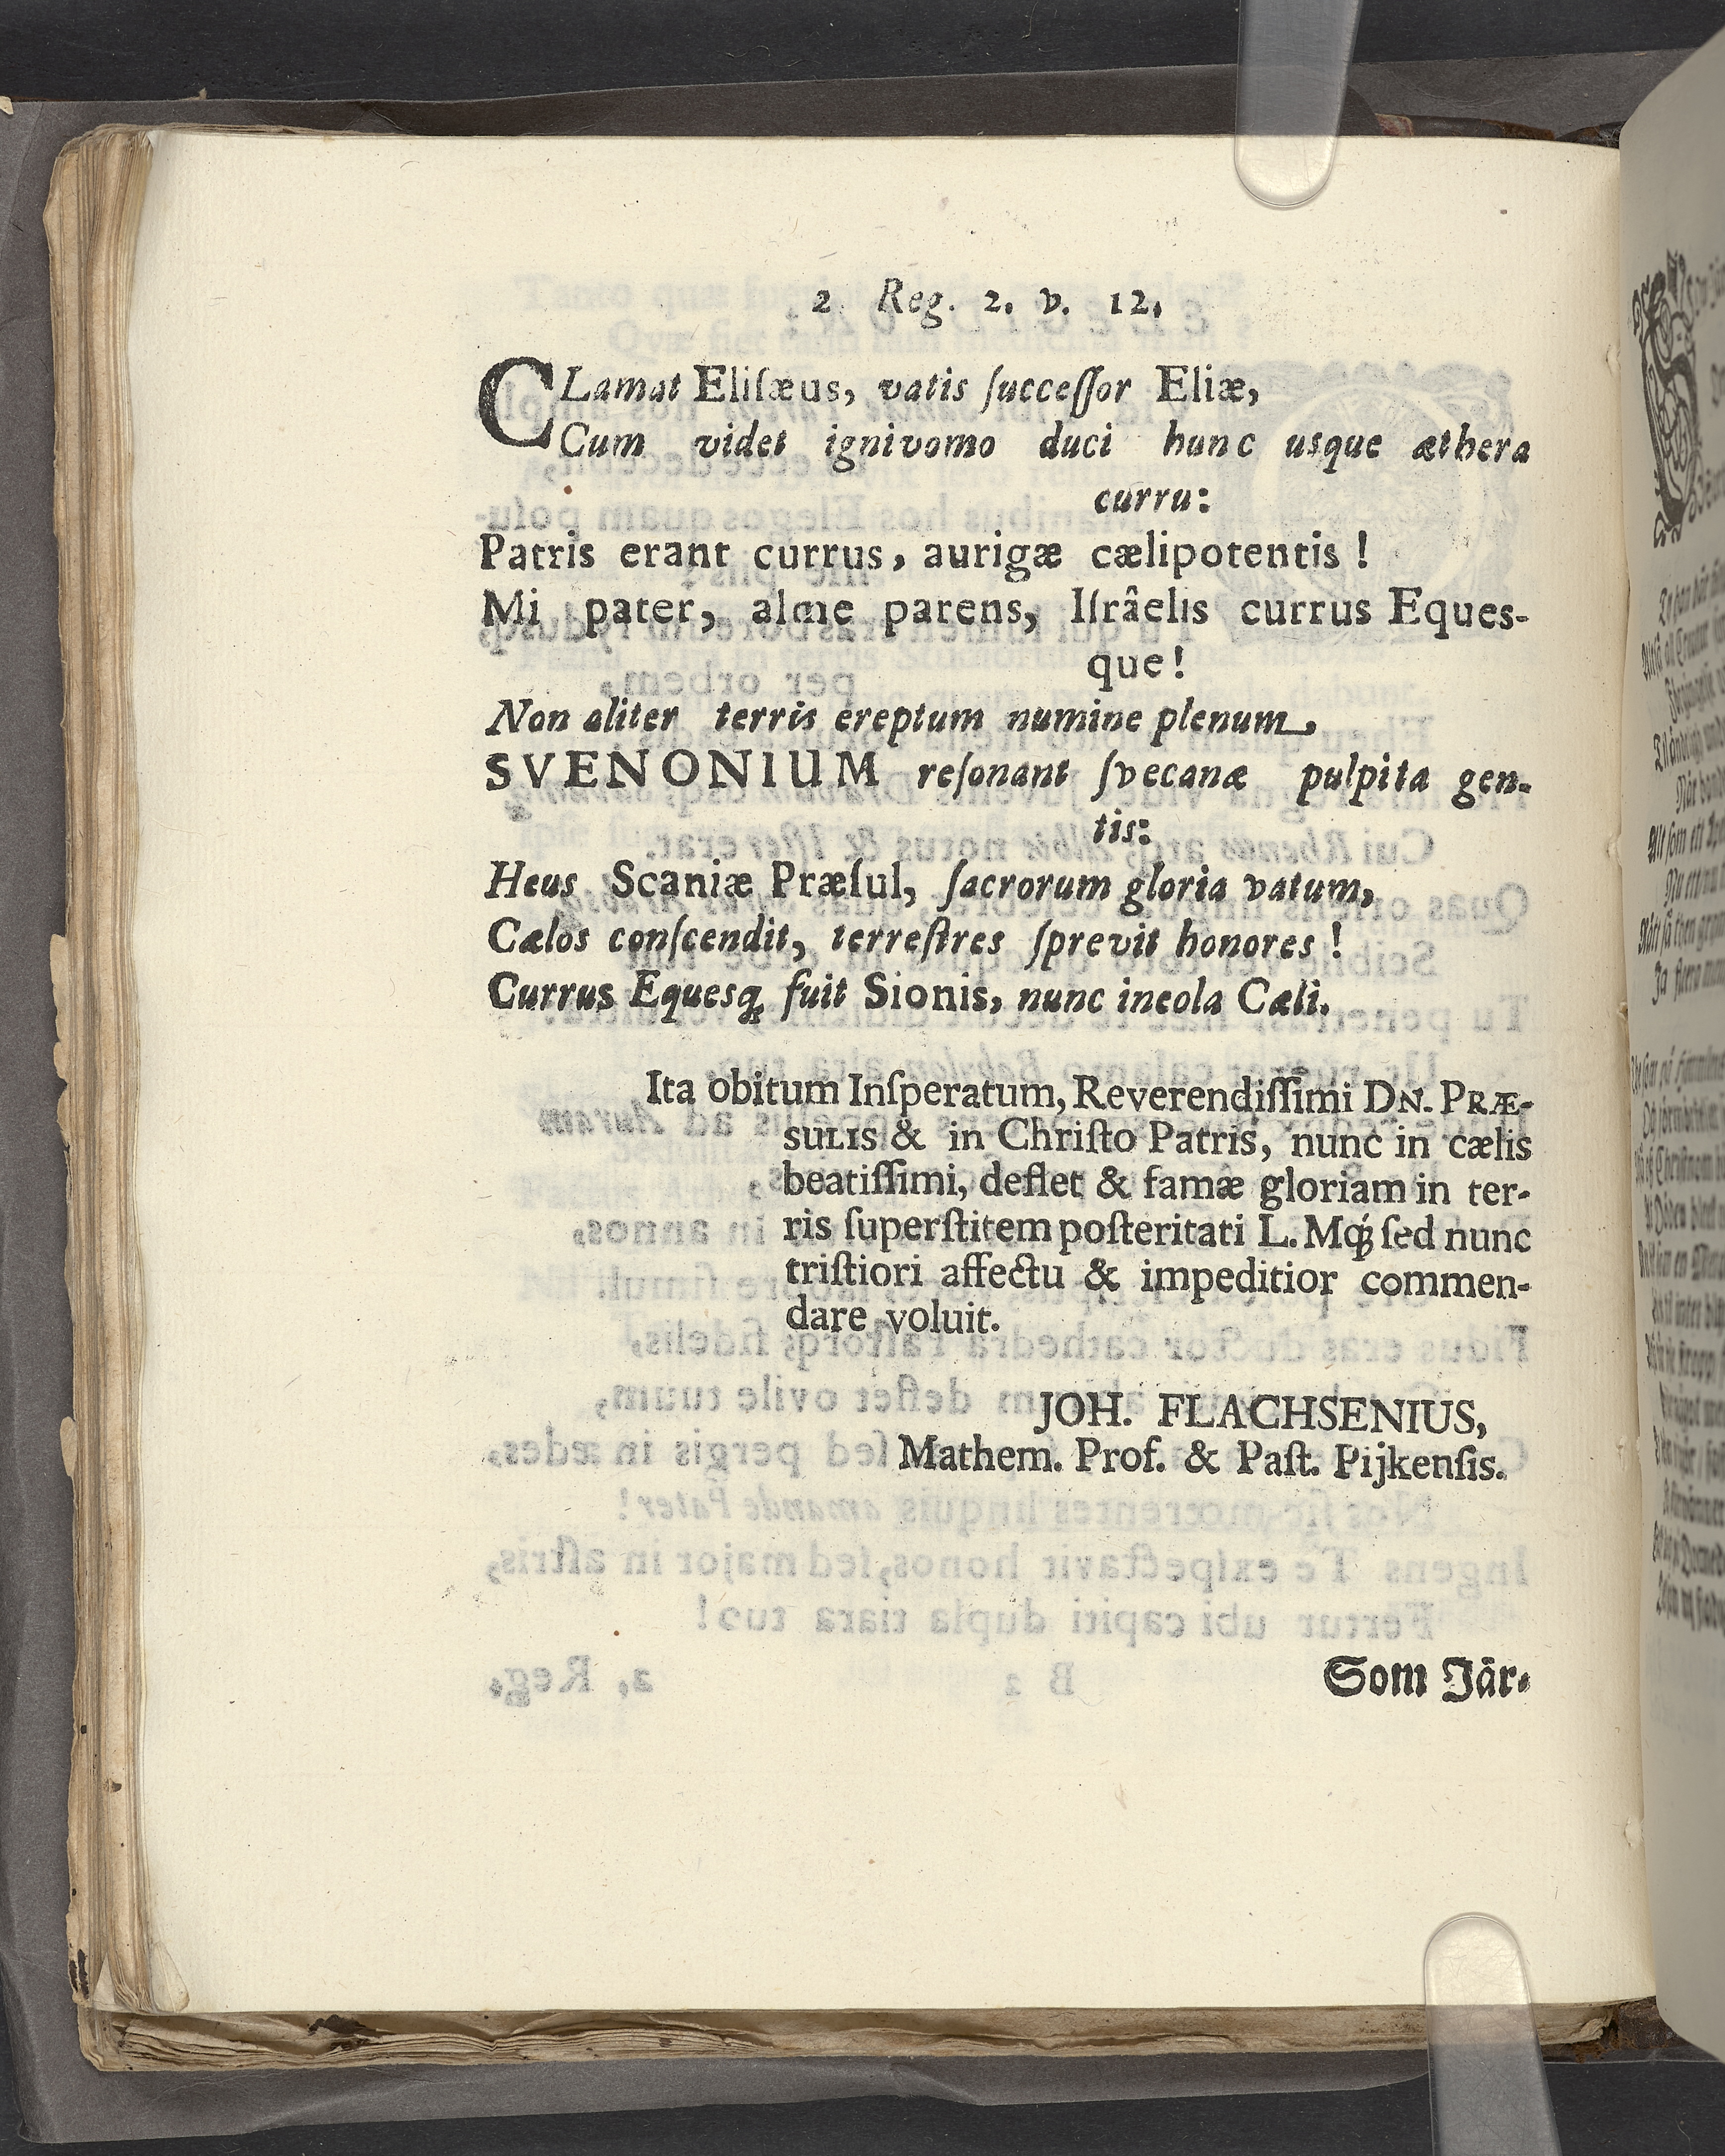 2 Reg. 2. v. 12.
CLamat Eliſæus, vatis ſucceſſor Eliæ,
Cum videt ignivomo duci hunc usque æthera
curru:
Patris erant currus, aurigæ cælipotentis!
Mi pater, alme parens, Iſrâelis currus Eques-
que!
Non aliter terris ereptum numine plenum,
SVENONIUM reſonant ſvecanæ pulpita gen-
tis:
Heus Scaniæ Præſul, ſacrorum gloria vatum,
Cælos conſcendit, terreſtres ſprevit honores!
Currus Equesq; fuit Sionis, nunc incola Cæli.
Ita obitum Inſperatum, Reverendiſſimi DN. PRÆ-
SULIS & in Chriſto Patris, nunc in cælis
beatiſſimi, deflet & famæ gloriam in ter-
ris ſuperſtitem poſteritati L. Mq́; ſed nunc
triſtiori affectu & impeditior commen-
dare voluit.
JOH. FLACHSENIUS,
Mathem. Prof. & Paſt. Pijkenſis.
Som Jär-